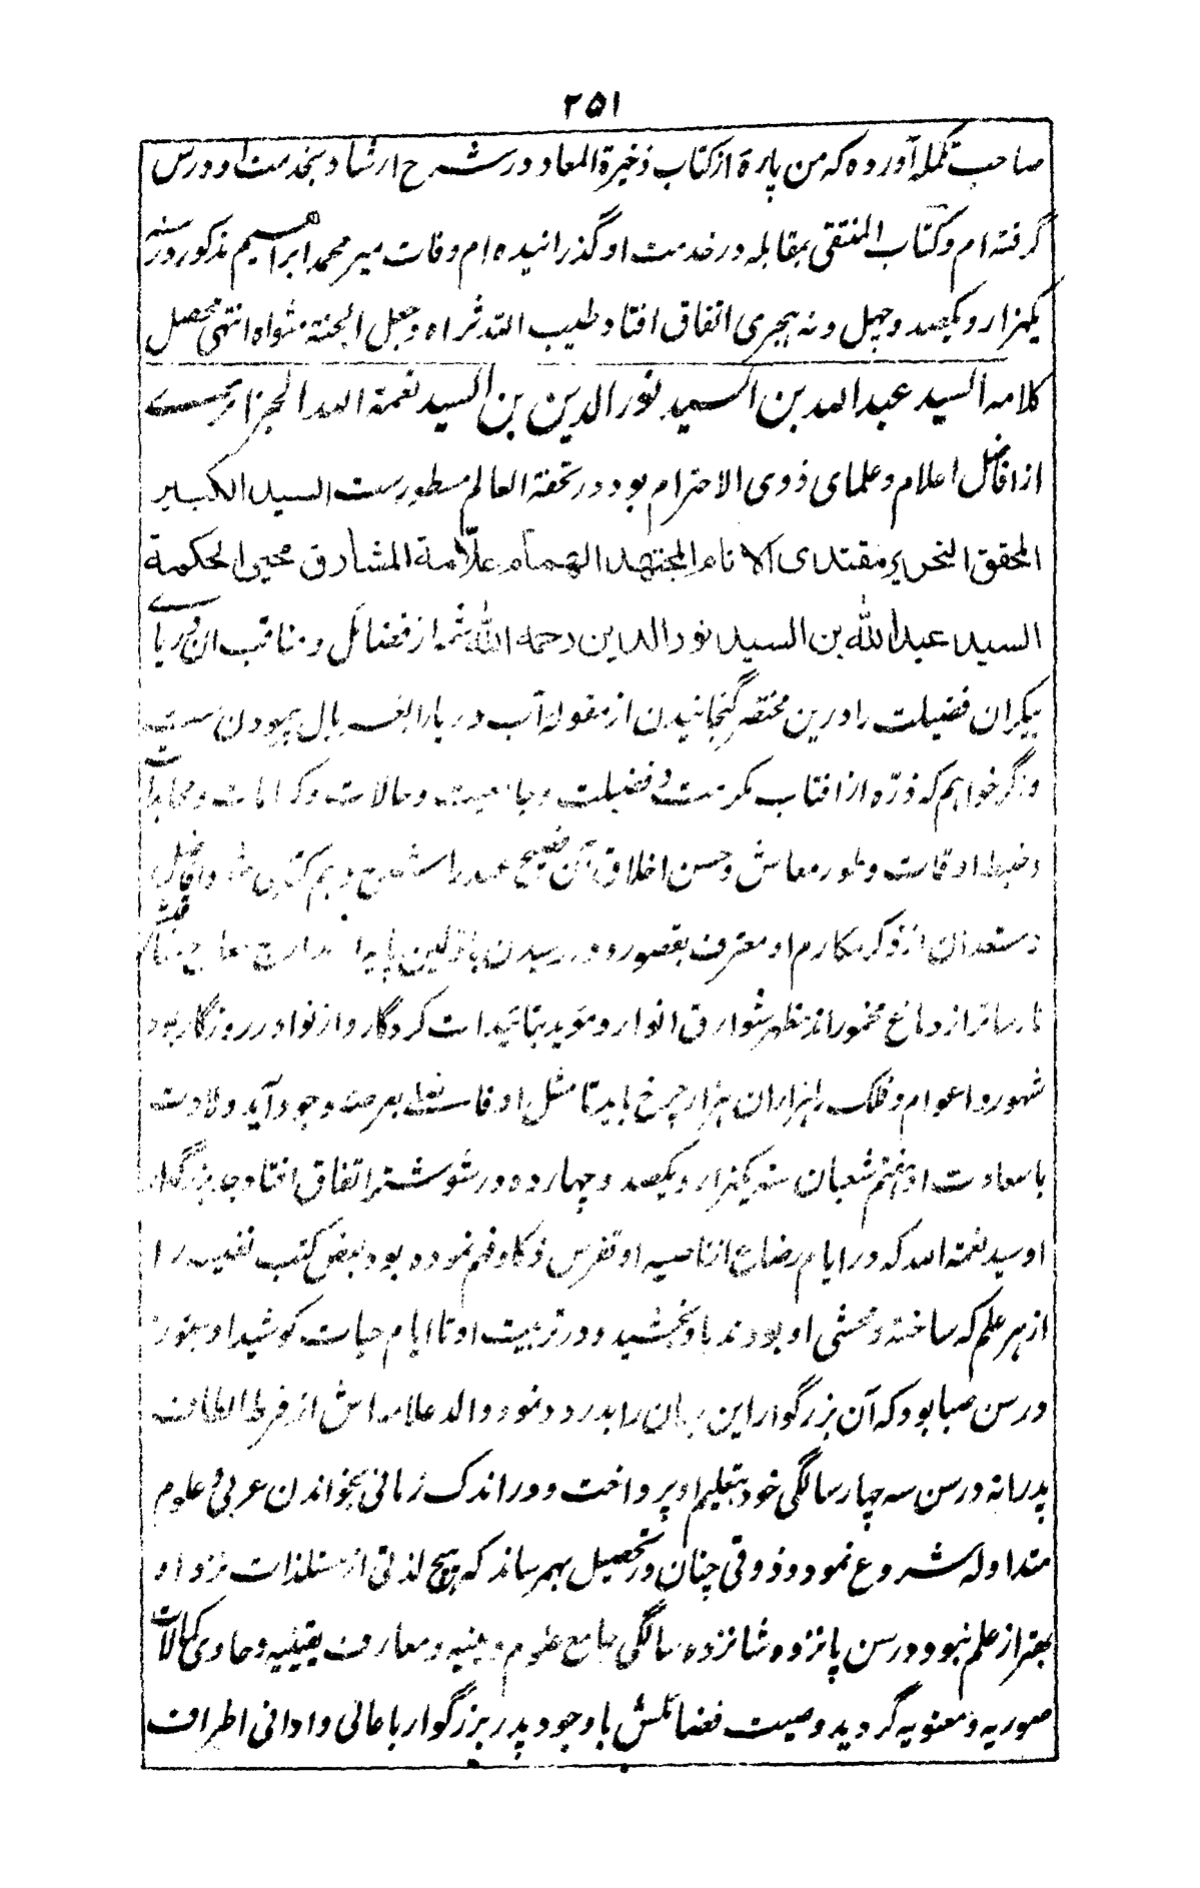 ۲۵۱
صاحب تکمله آورده که من پارهٔ از کتاب ذخیرة المعاد در شرح ارشاد بخدمت او درس
گرفته ام و کتاب المنتقی بمقابله در خدمت او گذرانیده ام وفات میر محمد ابراهیم مذکور در سنه
یکهزار و یکصد و چهل و نه هجری اتفاق افتاد طیب الله ثراه و جعل الجنة مثواه انتهی محصل
کلامه السید عبد الله بن السید نور الدین بن السید نعمة الله الجزائری
از افاضل اعلام و علمای ذوی الاحترام بود در تحفة العالم مسطور ست السید الکبیر
المحقق النحریر مقتدی الانام المجتهد الهمام علّامة المشارق محیی الحکمة
السید عبد الله بن السید نور الدین رحمه الله شمه از فضائل و مناقب ان دریای
بیکران فضیلت را درین مختصر گنجانیدن از مقوله آب دریا را بغربال پیمودن ست
و گر خواهم که ذرّه از افتاب مکرمت و فضیلت و جامعیت و حالات و کرامات و مجاهدات
و ضبط اوقات و طور معاش و حسن اخلاق آن فصیح عهد را شرح دهم کتابی و افاضل
مستعدان از ذکر مکارم او معترف بقصور و در رسیدن باولین پایه از مدارج معارج
نارساتر از دماغ مخمور اند مظهر شوارق انوار و مؤید بتائیدات کردگار و از نوادر روزگار بود
شهور و اعوام و فلک را هزاران هزار چرخ باید تا مثل او فاضلی بعرصه وجود آید ولادت
با سعادت او هفتم شعبان سنه یکهزار و یکصد و چهارده در شوشتر اتفاق افتاد جد بزرگوار
او سید نعمة الله که در ایام رضاع از ناصیه او تفرس ذکا و فهم نموده بود بعض کتب نفیسه را
از هر علم که ساخته و محشی او بودند باو بخشید و در تربیت او تا ایام حیات کوشید او هنوز
در سن صبا بود که آن بزرگوار این جهان را بدرود نمود و والد علامه اش از فرط الطاف
پدرانه در سن سه چهار سالگی خود بتعلیم او پرداخت و در اندک زمانی بخواندن عربی و علوم
متداوله شروع نمود و ذوقی چنان در تحصیل بهمرساند که هیچ لذتی از مستلذات نزد او
بهتر از علم نبود در سن پانزده شانزده سالگی جامع علوم دینیه و معارف یقینیه و حاوی کمالات
صوریه و معنویه گردید وصیت فضائلش با وجود پدر بزرگوار باعالی و ادانی اطراف